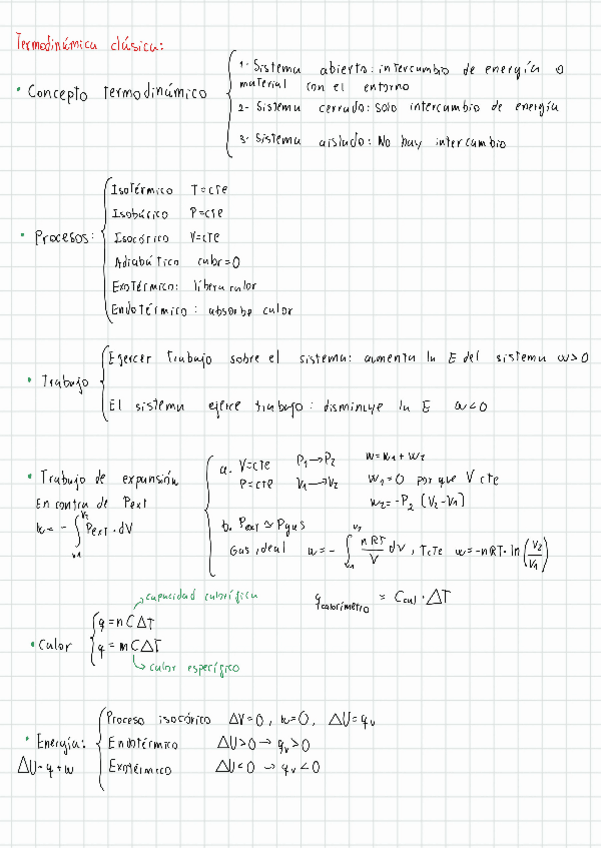 Termodinámica clásica:
• Concepto termodinámico
1- Sistema abierto: intercambio de energía o
material con el entorno
2- Sistema cerrado: solo intercambio de energía
3- Sistema aislado: No hay intercambio
• Procesos:
Isotérmico T=cte
Isobárico P=cte
Isocórico V=cte
Adiabático calor=0
Exotérmico: libera calor
Endotérmico: absorbe calor
• Trabajo
Ejercer trabajo sobre el sistema: aumenta la E del sistema w>0
El sistema ejerce trabajo: disminuye la E w<0
• Trabajo de expansión
En contra de Pext
w = - ∫_{V1}^{V2} Pext · dV
a. V=cte P1→P2 w=w1+w2
P=cte V1→V2 w1=0 por que V cte
w2=-P2 (V2-V1)
b. Pext ≃ Pgas
Gas ideal w = - ∫_{V1}^{V2} nRT/V dV, T cte w=-nRT·ln(V2/V1)
qcalorímetro = Ccal · ΔT
capacidad calorífica
• Calor
q = n C ΔT
q = m C ΔT
calor específico
• Energía:
ΔU=q+w
Proceso isocórico ΔV=0, w=0, ΔU=qv
Endotérmico ΔU>0 → qv>0
Exotérmico ΔU<0 → qv<0